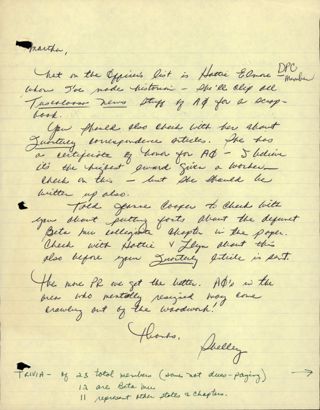 Martha,
Not on the Officers list is Hattie Elmore DPO Member
whom I've made historian - she'll clip all
Tuscaloosa News stuff of AΦ for a scrap-
book.
You should also check with her about
Quarterly correspondence articles. She has
a certificate of honor for AΦ - I believe
it's the highest award given a worker -
check on this - but she should be
written up also.
Told Cooper to check with
you about putting facts about the defunct
Beta Mu collegiate chapter in the paper.
Check with Hattie & about this
also before your Quarterly article is sent.
The more PR we get the better. AΦ's in the
area who mentally resigned may come
crawling out of the woodwork!
Thanks,
Shelley
TRIVIA - Of 23 total members (some not dues-paying)
12 are Beta Mu
11 represent other states & chapters.